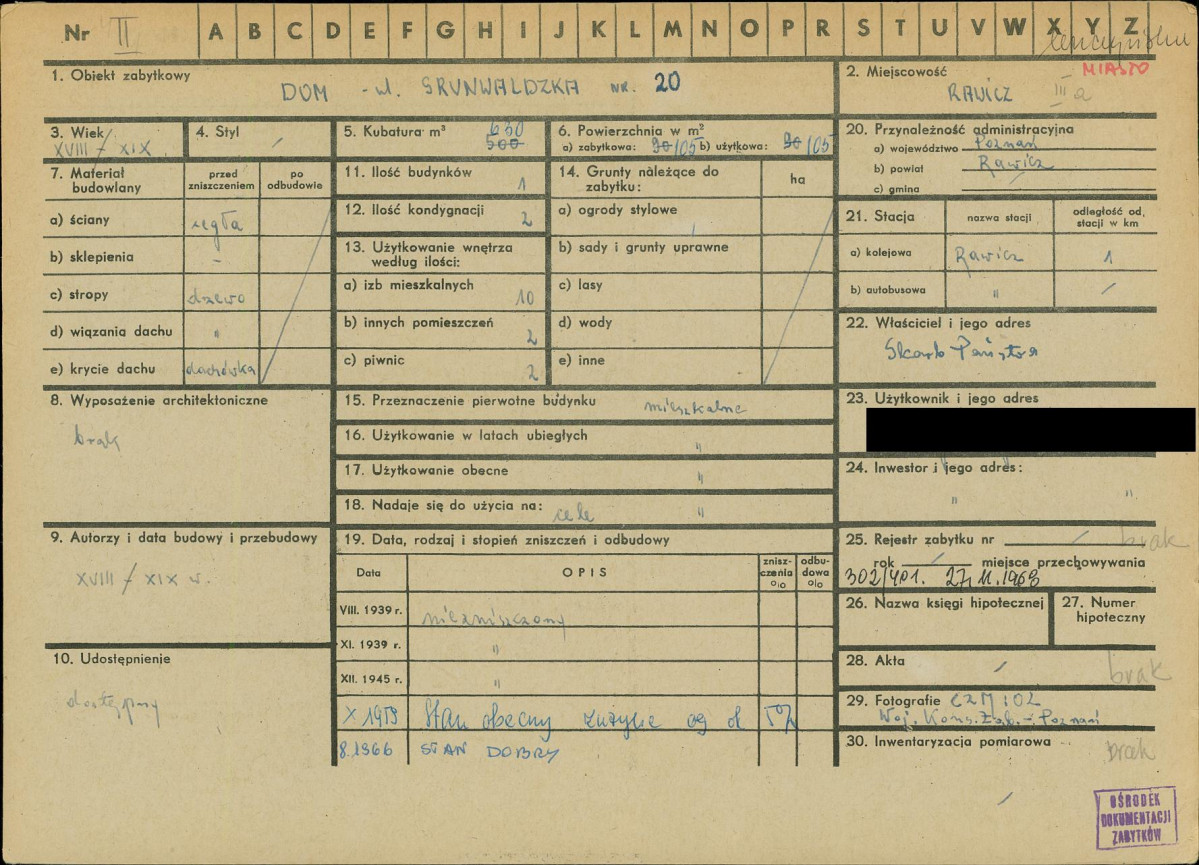 Nr II A B C D E F G H I J K L M N O P R S T U V W X Y Z
MIASTO
1. Obiekt zabytkowy
DOM - ul. GRUNWALDZKA NR. 20
2. Miejscowość
RAWICZ III a
3. Wiek
XVIII/XIX
4. Styl /
5. Kubatura m³
630
500
6. Powierzchnia w m²
a) zabytkowa: 90/105 b) użytkowa: 90/105
20. Przynależność administracyjna
a) województwo Poznań
b) powiat Rawicz
c) gmina /
7. Materiał budowlany
przed zniszczeniem
po odbudowie
a) ściany cegła
b) sklepienia -
c) stropy drzewo
d) wiązania dachu "
e) krycie dachu dachówka
11. Ilość budynków 1
12. Ilość kondygnacji 2
13. Użytkowanie wnętrza
według ilości:
a) izb mieszkalnych 10
b) innych pomieszczeń 2
c) piwnic 2
14. Grunty należące do
zabytku:
ha
a) ogrody stylowe
b) sady i grunty uprawne
c) lasy
d) wody
e) inne
21. Stacja
nazwa stacji
odległość od
stacji w km
a) kolejowa Rawicz 1
b) autobusowa " /
22. Właściciel i jego adres
Skarb Państwa
8. Wyposażenie architektoniczne
brak
15. Przeznaczenie pierwotne budynku mieszkalne
16. Użytkowanie w latach ubiegłych "
17. Użytkowanie obecne "
18. Nadaje się do użycia na: cele "
23. Użytkownik i jego adres
24. Inwestor i jego adres:
" "
9. Autorzy i data budowy i przebudowy
XVIII/XIX w.
10. Udostępnienie
dostępny
19. Data, rodzaj i stopień zniszczeń i odbudowy
Data
OPIS
znisz-
czenia
%
odbu-
dowa
%
VIII. 1939 r. niezniszczony
XI. 1939 r. "
XII. 1945 r. "
X 1959 Stan obecny zużycie og ok
8.1966 STAN DOBRY
25. Rejestr zabytku nr / brak
rok / miejsce przechowywania
302/401. 27.11.1968
26. Nazwa księgi hipotecznej
27. Numer
hipoteczny
28. Akta / brak
29. Fotografie CZM i OZ
Woj. Kons. Zab. - Poznań
30. Inwentaryzacja pomiarowa brak
/
OŚRODEK
DOKUMENTACJI
ZABYTKÓW